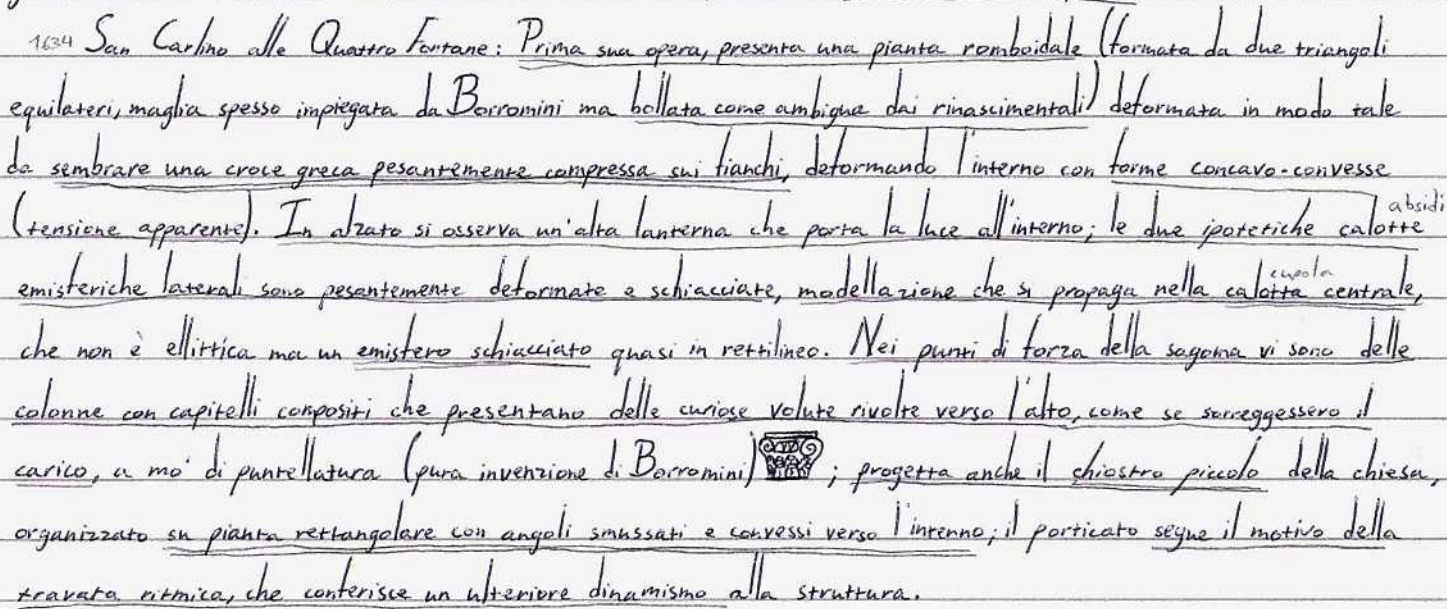 1634 San Carlino alle Quattro Fontane: Prima sua opera, presenta una pianta romboidale (formata da due triangoli
equilateri, maglia spesso impiegata da Borromini ma bollata come ambigua dai rinascimentali) deformata in modo tale
da sembrare una croce greca pesantemente compressa sui fianchi, deformando l'interno con forme concavo-convesse
(tensione apparente). In alzato si osserva un'alta lanterna che porta la luce all'interno; le due ipotetiche calotte absidi
emisferiche laterali sono pesantemente deformate e schiacciate, modellazione che si propaga nella calotta centrale, cupola
che non è ellittica ma un emisfero schiacciato quasi in rettilineo. Nei punti di forza della sagoma vi sono delle
colonne con capitelli compositi che presentano delle curiose volute rivolte verso l'alto, come se sorreggessero il
carico, a mo' di puntellatura (pura invenzione di Borromini) ; progetta anche il chiostro piccolo della chiesa,
organizzato su pianta rettangolare con angoli smussati e convessi verso l'interno; il porticato segue il motivo della
travata ritmica, che conferisce un ulteriore dinamismo alla struttura.